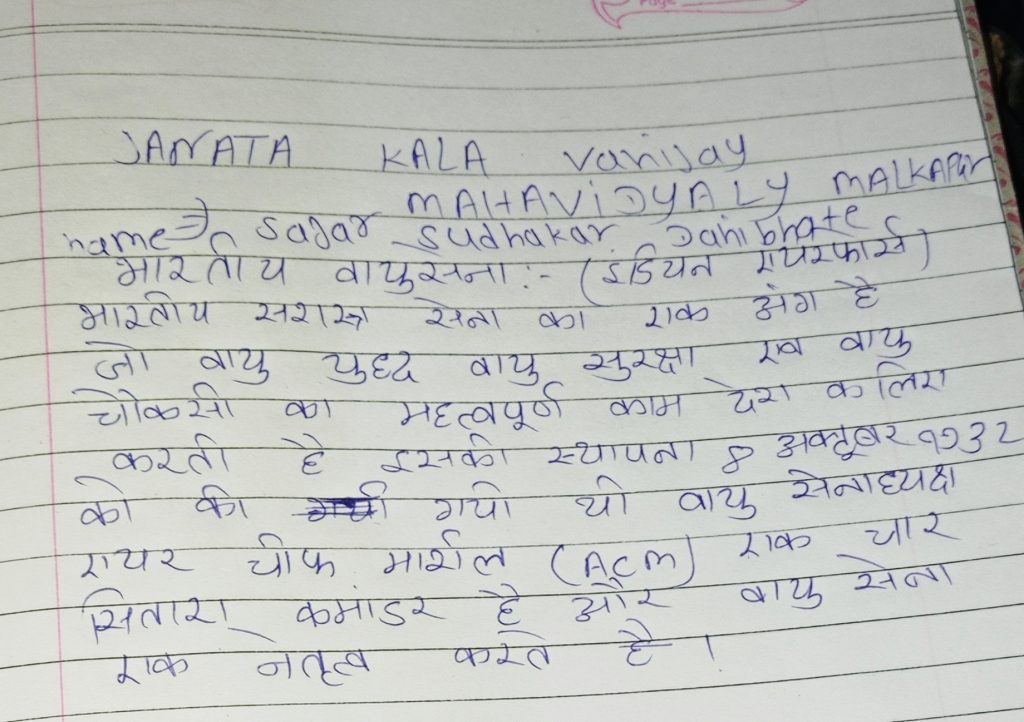 Page
JANATA KALA Vanijay
MAHAVIDYALY MALKAPUR
name⇒ Sagar Sudhakar Dahibhate
भारतीय वायुसेना:- (इडियन एयरफोर्स)
भारतीय सशस्त्र सेना का एक अंग है
जो वायु युध्द वायु सुरक्षा एव वायु
चौकसी का महत्वपूर्ण काम देश क लिए
करती है इसकी स्थापना 8 अक्टूबर १९३२
को की गयी थी वायु सेनाध्यक्ष
एयर चीफ मार्शल (ACM) एक चार
सितारा कमांडर है और वायु सेना
एक नेतृत्व करते है।